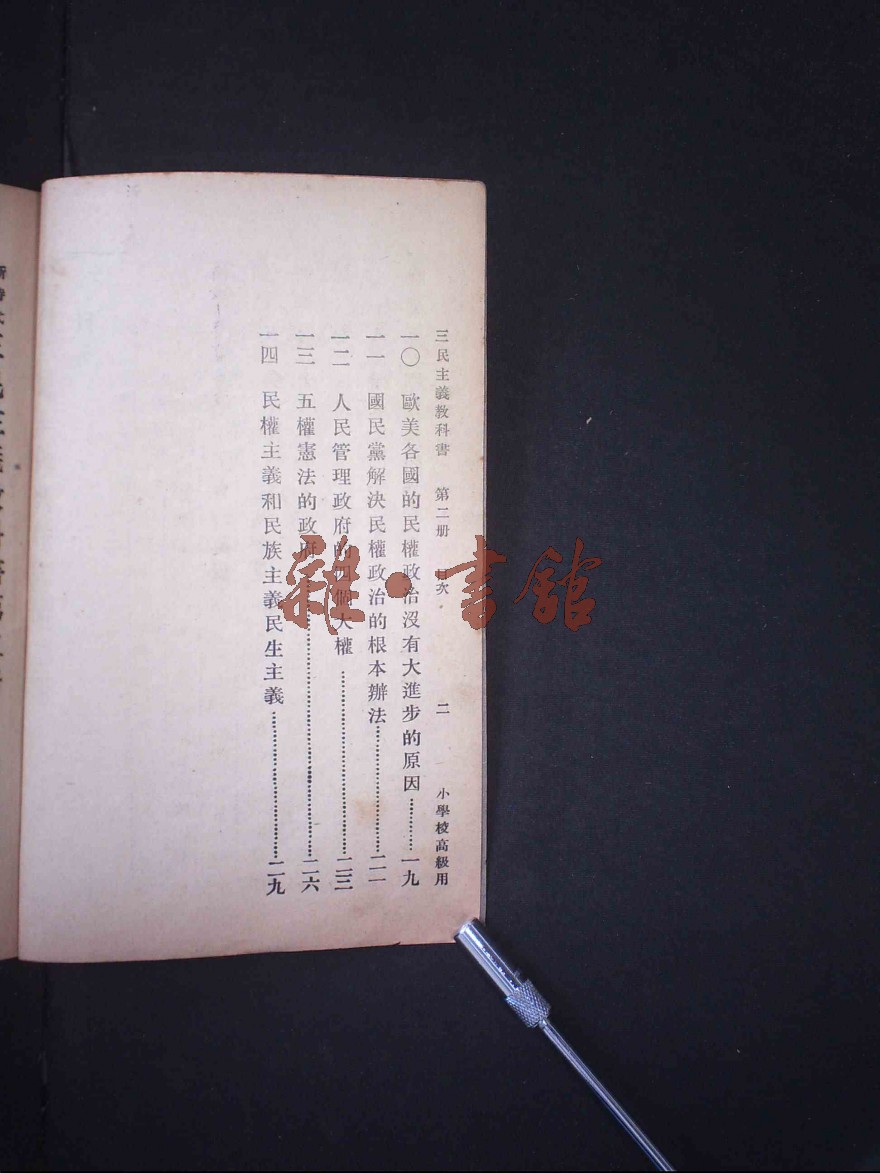 三民主義教科書 第二册 目次 二 小學校高級用
一〇 歐美各國的民權政治沒有大進步的原因…………一九
一一 國民黨解決民權政治的根本辦法…………二一
一二 人民管理政府的四個大權…………二三
一三 五權憲法的政府…………二六
一四 民權主義和民族主義民生主義…………二九
雜·書館